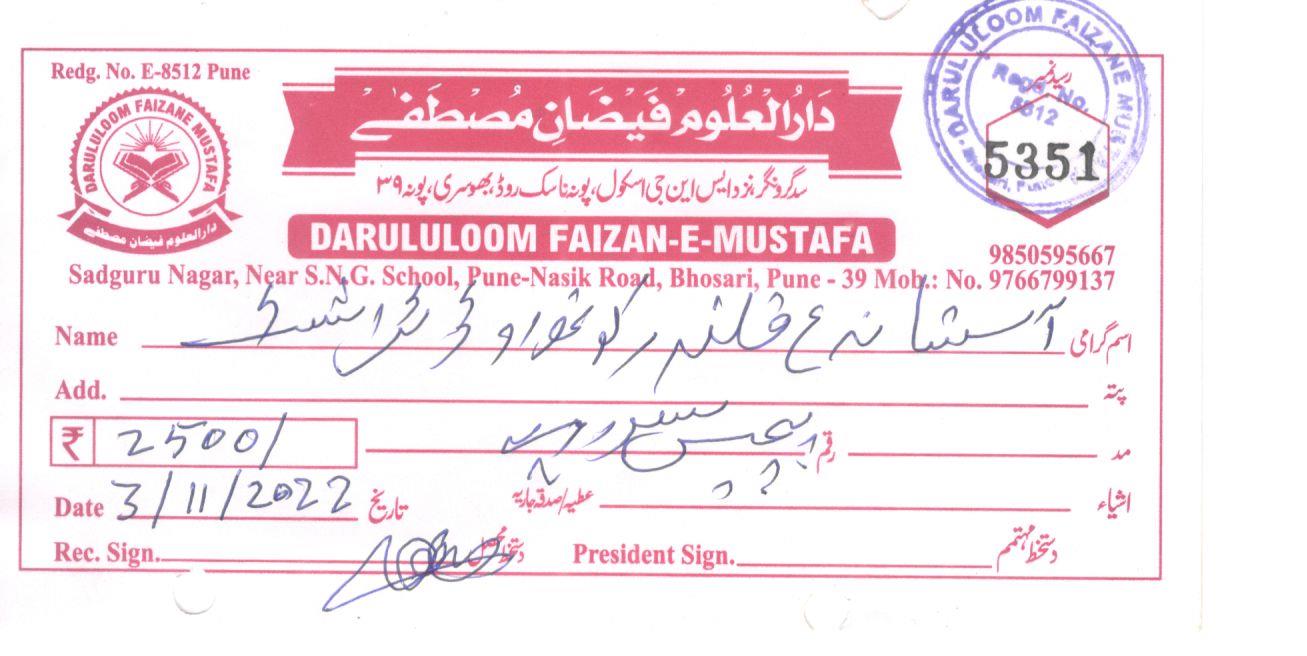 Redg. No. E-8512 Pune
DARULULOOM FAIZANE MUSTAFA
دارالعلوم فیضان مصطفےٰ
دَارُالعُلُوم فَیضَانِ مُصطَفےٰ
سدگرونگر، نزد ایس این جی اسکول، پونہ ناسک روڈ، بھوسری، پونہ ۳۹
DARULULOOM FAIZAN-E-MUSTAFA
DARUL ULOOM FAIZANE MU
Regd. No.
8512
رسید نمبر
5351
9850595667
Sadguru Nagar, Near S.N.G. School, Pune-Nasik Road, Bhosari, Pune - 39 Mob.: No. 9766799137
Name آستانہ قلندر اسم گرامی
Add. پتہ
₹ 2500/ رقم پچیس سو روپے مد
Date 3/11/2022 تاریخ عطیہ/صدقہ جاریہ اشیاء
Rec. Sign. دستخط President Sign. دستخط مہتمم